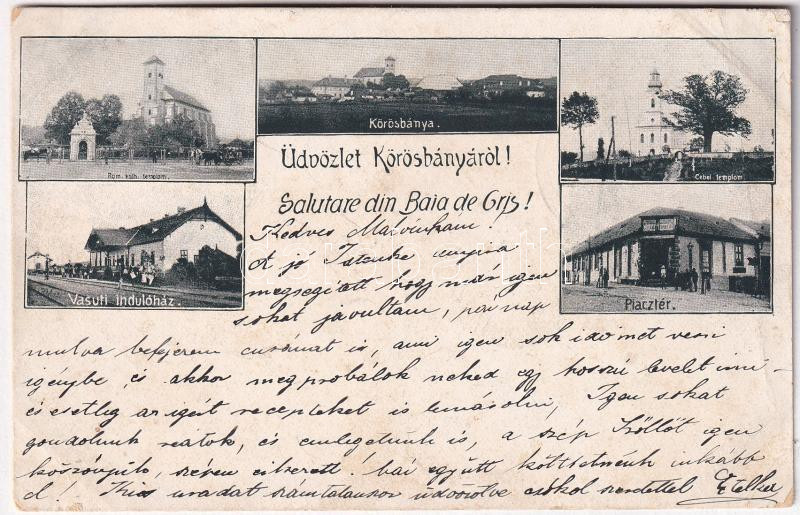 Röm. kath. templom.
Körösbánya.
Cebei templom
Üdvözlet Körösbányáról!
Salutare din Baia de Criş!
Vasuti indulóház.
Piacztér.
Kedves Malvinkám!
A jó Istenke annyira
megsegitett hogy már igen
sokat javultam, pár nap
mulva befejezem curámat is, ami igen sok időmet veszi
igénybe, és akkor megpróbálok neked egy hosszú levelet irni
és esetleg az igért recepteket is lemásolni, Igen sokat
gondolunk reátok, és emlegetünk is, a szép Szőlőt igen
köszönjük, szépen elkezett! bár együtt költhetnénk inkább
el! Kis uradat számtalanszor üdvözölve csókol szeretettel Etelka